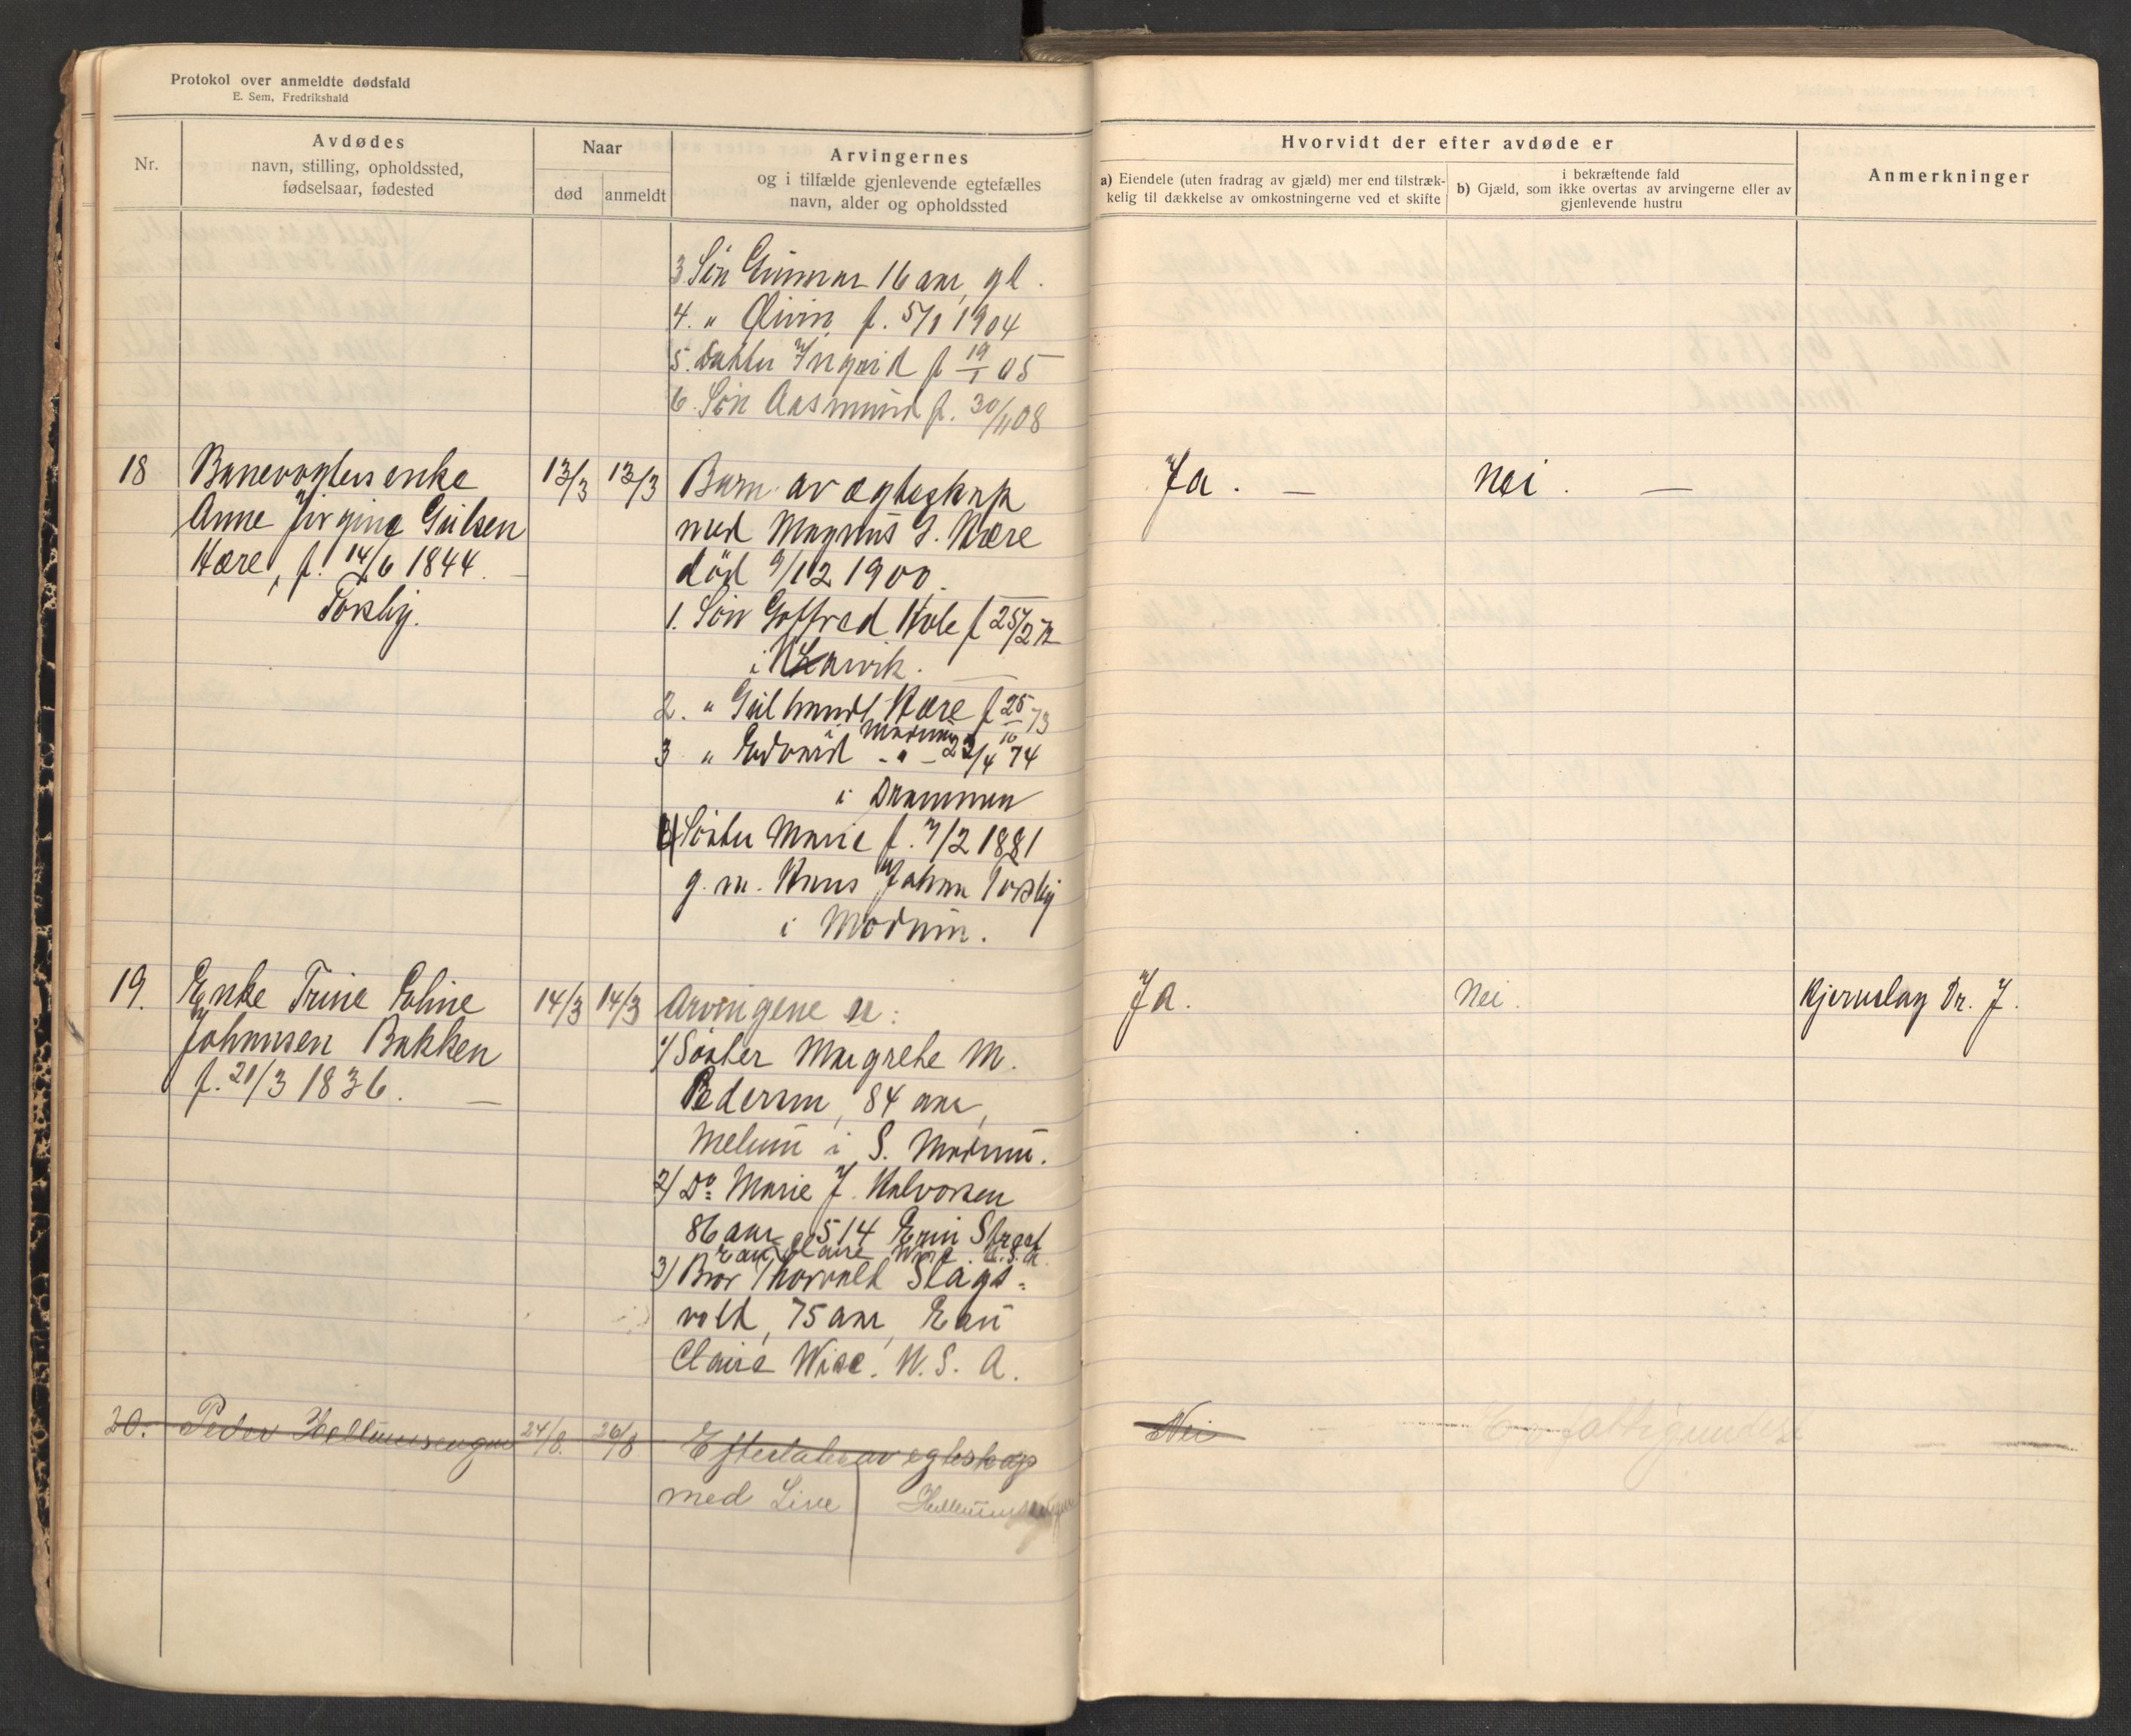 Protokol over anmeldte dødsfald
E. Sem, Fredrikshald
Nr.
Avdødes
navn, stilling, opholdssted,
fødselsaar, fødested
Naar
død
anmeldt
Arvingernes
og i tilfælde gjenlevende egtefælles
navn, alder og opholdssted
Hvorvidt der efter avdøde er
a) Eiendele (uten fradrag av gjæld) mer end tilstræk-
kelig til dækkelse av omkostningerne ved et skifte
i bekræftende fald
b) Gjæld, som ikke overtas av arvingerne eller av
gjenlevende hustru
Anmerkninger
3 Søn Gunnar 16 aar gl.
4. " Øivin f. 5/8 1904
5. Datter Ingrid f 19/1 05
6. Søn Aasmund f. 30/11 08
18 Banevogters enke 13/3 13/3 Barn av ægteskap Ja. — Nei. —
Anne Jirgine Gulsen med Magnus G. Hære
Hære, f. 14/6 1844. død 9/12 1900.
Torsby. 1. Søn Gotfred Hole f 25/2 72
i Larvik.
2. " Gulbrand Hære f 25/10 73
i Modum
3 " Edvard - " - 23/4 74
i Drammen
4) Søster Marie f. 7/2 1881
g. m. Hans Johan Torsby
i Modum.
19. Enke Trine Eline 14/3 14/3 Arvingene er: Ja. Nei. Kjernslag Dr. J.
Johannsen Bakken 1/ Søster Margrethe M.
f. 21/3 1836. — Pedersen, 84 aar,
Melum i S. Modum.
2/ Do: Marie J. Halvorsen
86 aar, 514 Erin Street
Eau Claire Wisc. U.S.A.
3/ Bror Thorvald Slags-
vold, 75 aar, Eau
Claire Wisc. U.S.A.
20. Peder Hellumsengen 24/8. 26/8 Efterlater av egteskap Nei Er fattigunderst
med Live Hellumsengen